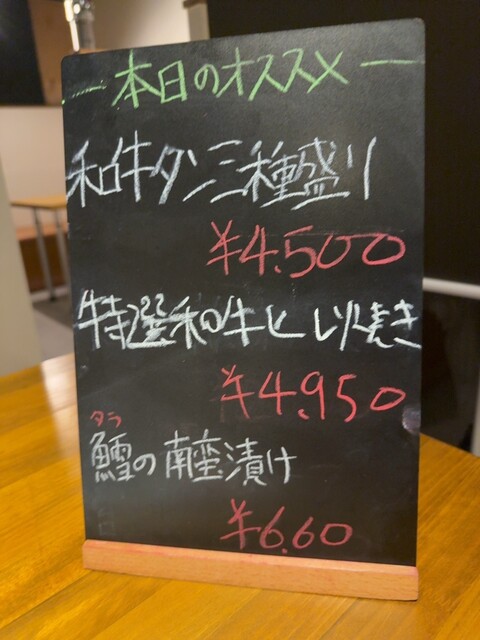 ー本日のオススメー
和牛タン三種盛り
¥4.500
特選和牛ヒレ炙り焼き
¥4.950
タラ
鱈の南蛮漬け
¥6.60